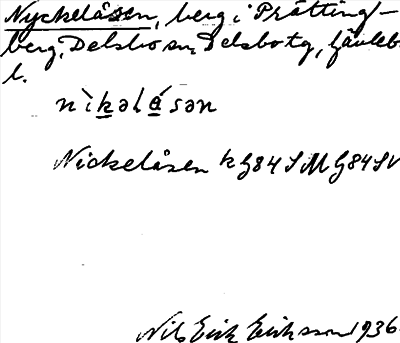 Nyckelåsen, berg i Prätting-
berg, Delsbo sn, Delsbo tg, Gävleb.
l.
nìkəlåsən
Nickelåsen k G84 S M G84 SV
Nils Erik Eriksson 1936